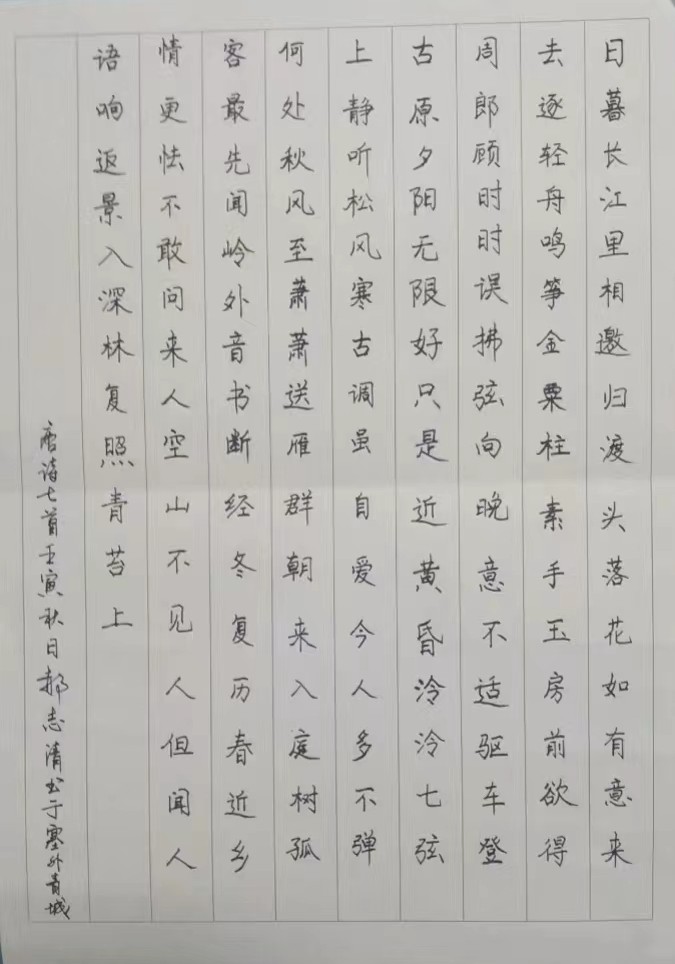 日暮长江里相邀归渡头落花如有意来
去逐轻舟鸣筝金粟柱素手玉房前欲得
周郎顾时时误拂弦向晚意不适驱车登
古原夕阳无限好只是近黄昏泠泠七弦
上静听松风寒古调虽自爱今人多不弹
何处秋风至萧萧送雁群朝来入庭树孤
客最先闻岭外音书断经冬复历春近乡
情更怯不敢问来人空山不见人但闻人
语响返景入深林复照青苔上
唐诗七首壬寅秋日郝志清书于塞外青城